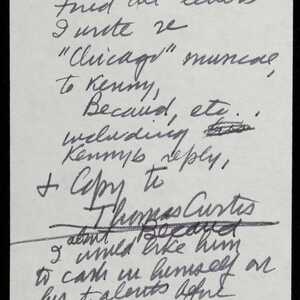 Find all letters
I wrote re
"Chicago" musical,
to Kenny,
Becaud, etc..
including
Kenny's reply,
& Copy to
Thomas Curtis
about Becaud
I would like him
to cash in himself on
his talents before